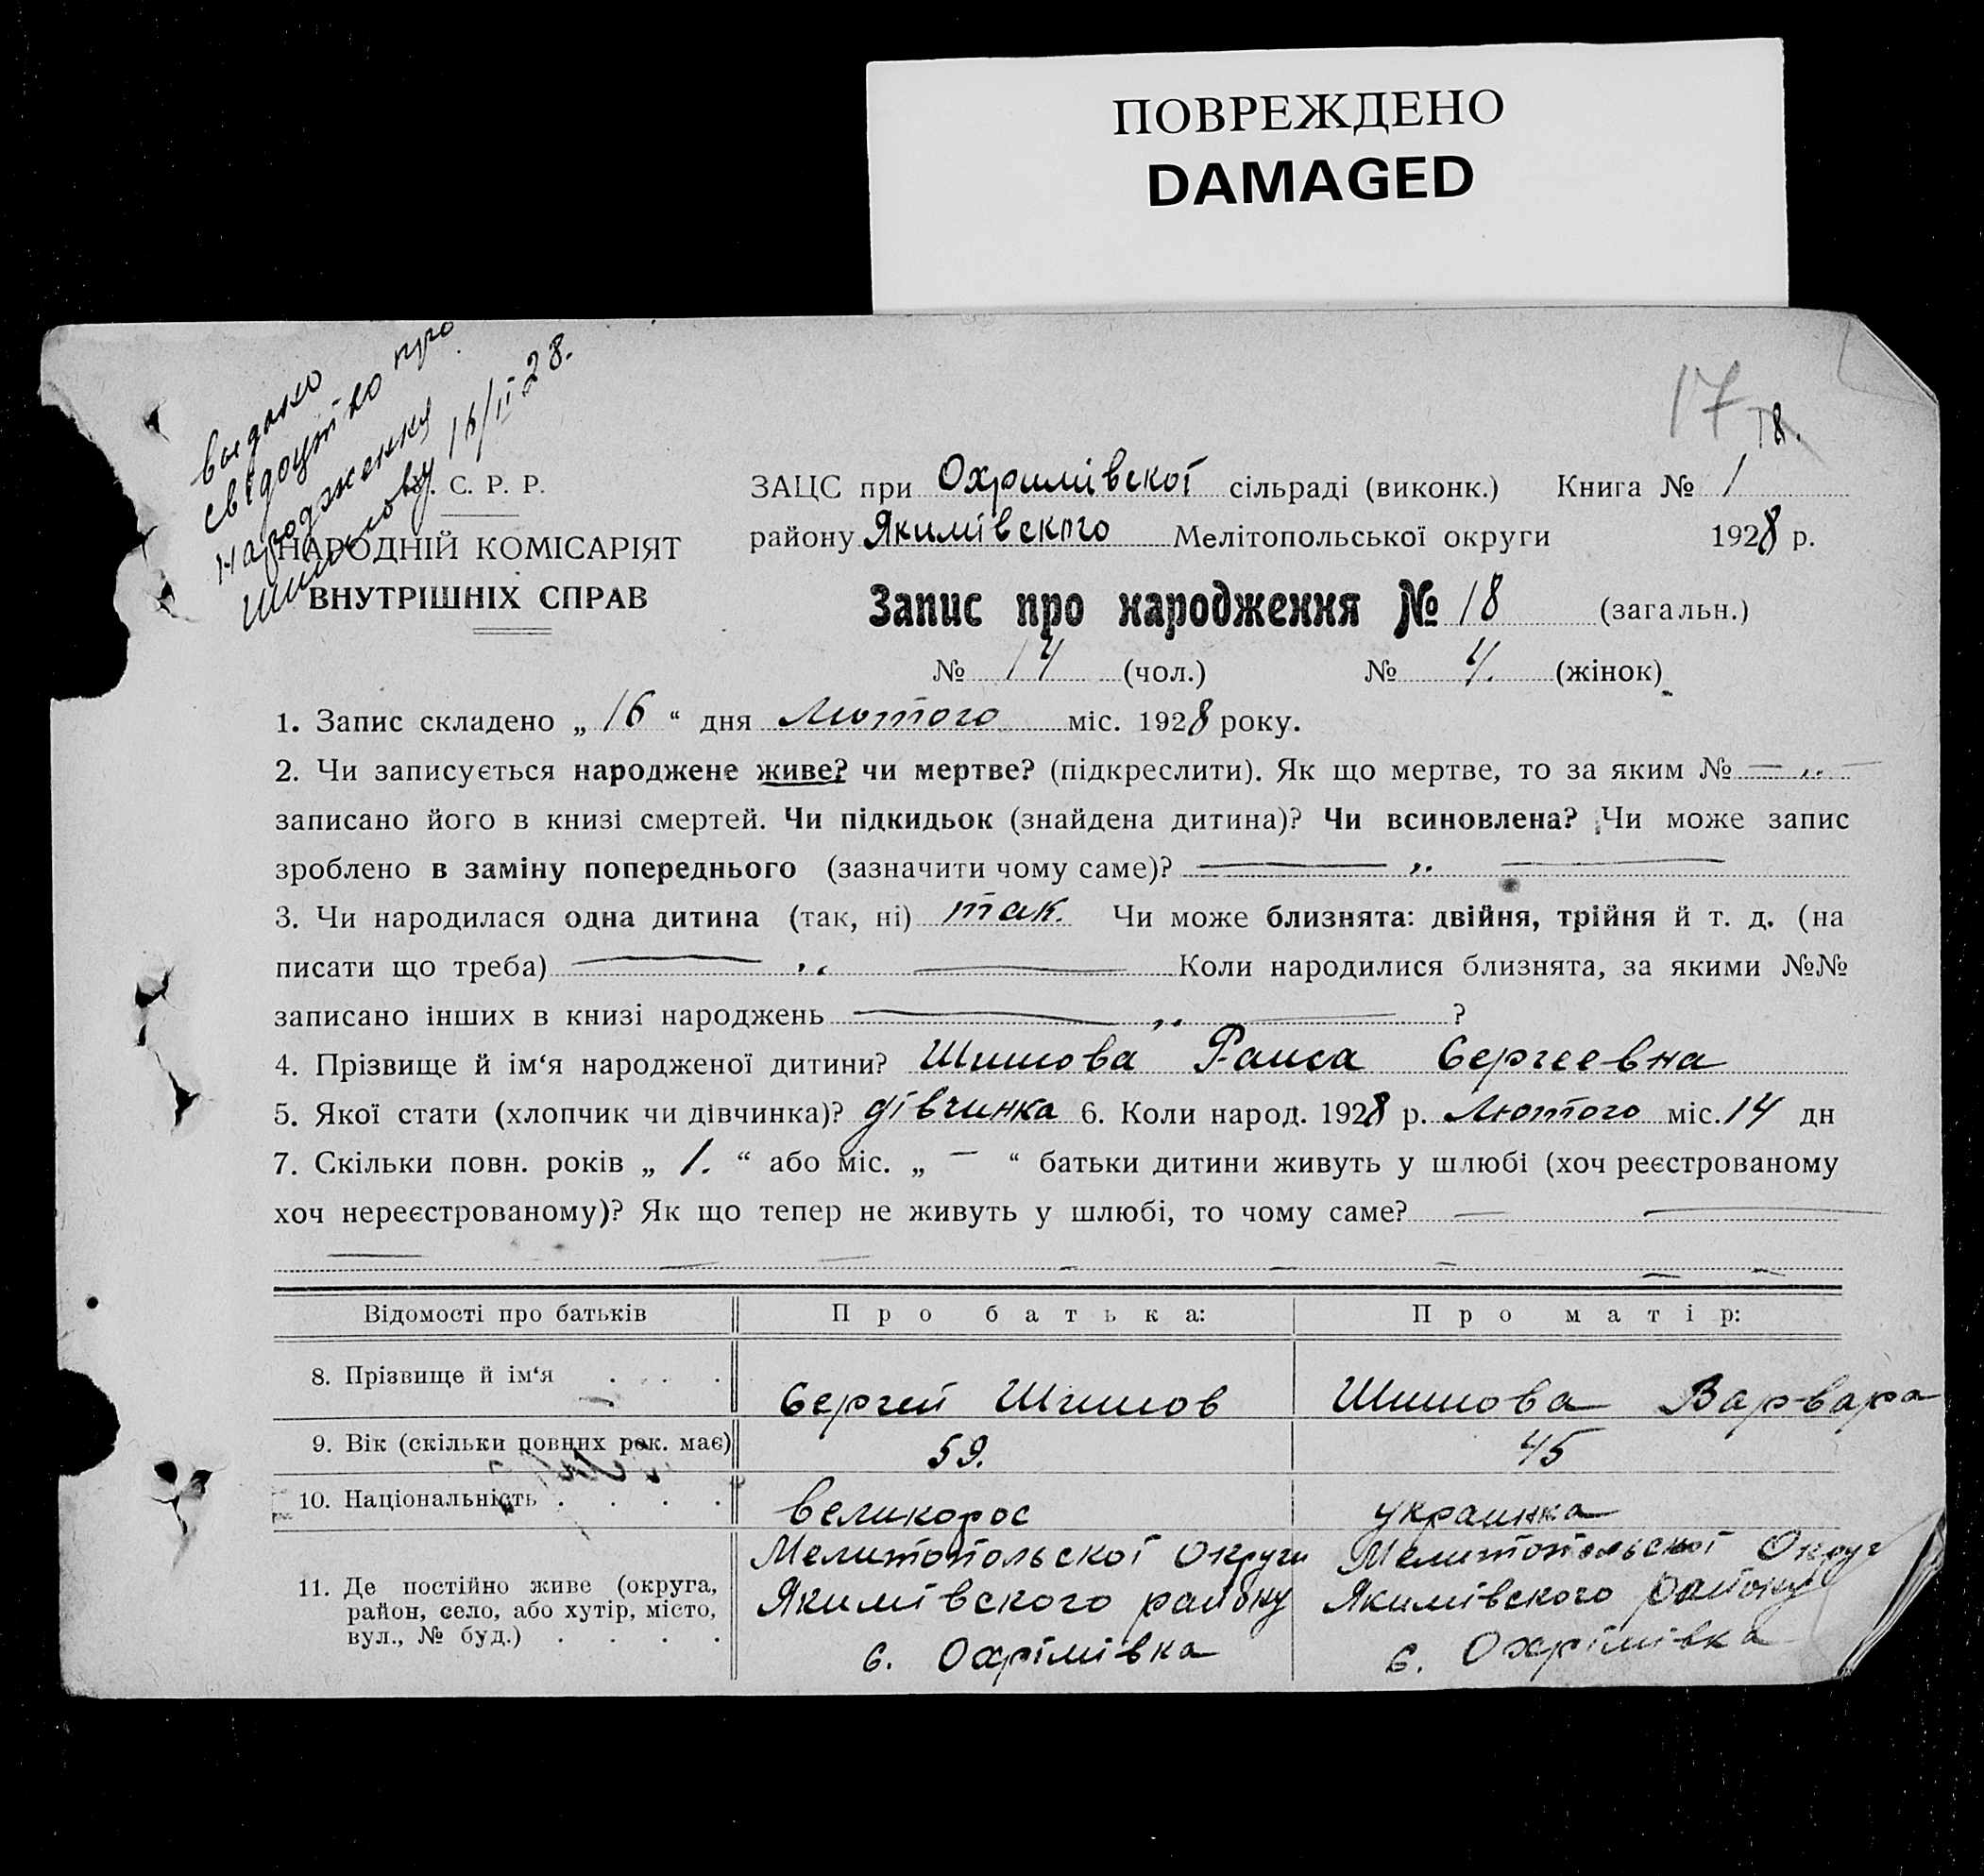 ПОВРЕЖДЕНО
DAMAGED
17
18.
выдано
свідоцтво про
народження
Шишлову 16/II 28.
У. С. Р. Р.
НАРОДНІЙ КОМІСАРІЯТ
ВНУТРІШНІХ СПРАВ
ЗАЦС при Охримівскої сільраді (виконк.) Книга № 1
району Якимівского Мелітопольської округи 1928 р.
Запис про народження № 18 (загальн.)
№ 14 (чол.) № 4. (жінок)
1. Запис складено „ 16 “ дня Лютого міс. 1928 року.
2. Чи записується народжене живе? чи мертве? (підкреслити). Як що мертве, то за яким № — „ —
записано його в книзі смертей. Чи підкидьок (знайдена дитина)? Чи всиновлена? Чи може запис
зроблено в заміну попереднього (зазначити чому саме)? — „ —
3. Чи народилася одна дитина (так, ні) так. Чи може близнята: двійня, трійня й т. д. (на
писати що треба) — „ — Коли народилися близнята, за якими №№
записано інших в книзі народжень — „ — ?
4. Прізвище й ім‘я народженої дитини? Раиса Сергеевна
5. Якої стати (хлопчик чи дівчинка)? дівчинка 6. Коли народ. 1928 р. Лютого міс. 14 дн
7. Скільки повн. років „ 1. “ або міс. „ — “ батьки дитини живуть у шлюбі (хоч реєстрованому
хоч нереєстрованому)? Як що тепер не живуть у шлюбі, то чому саме? — —
Відомості про батьків Про батька: Про матір:
8. Прізвище й ім‘я . . . . Сергей Варвара
9. Вік (скільки повних рок. має) 59. 45
10. Національність . . . . великорос украинка
11. Де постійно живе (округа, район, село, або хутір, місто, вул., № буд.) . . . .
Мелитопольскої Округи Мелитопольскої Округ
Якимівского району Якимівского району
с. Охрімівка с. Охрімівка